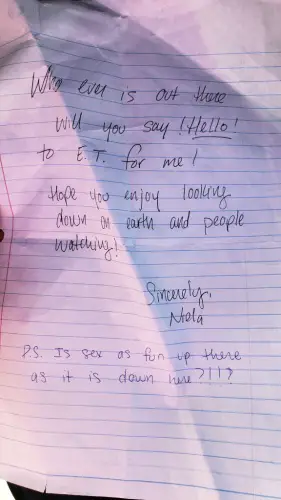 Who ever is out there
will you say !Hello!
to E.T. for me!
Hope you enjoy looking
down on earth and people
watching!
Sincerely,
Nola
P.S. Is sex as fun up there
as it is down here?!!?